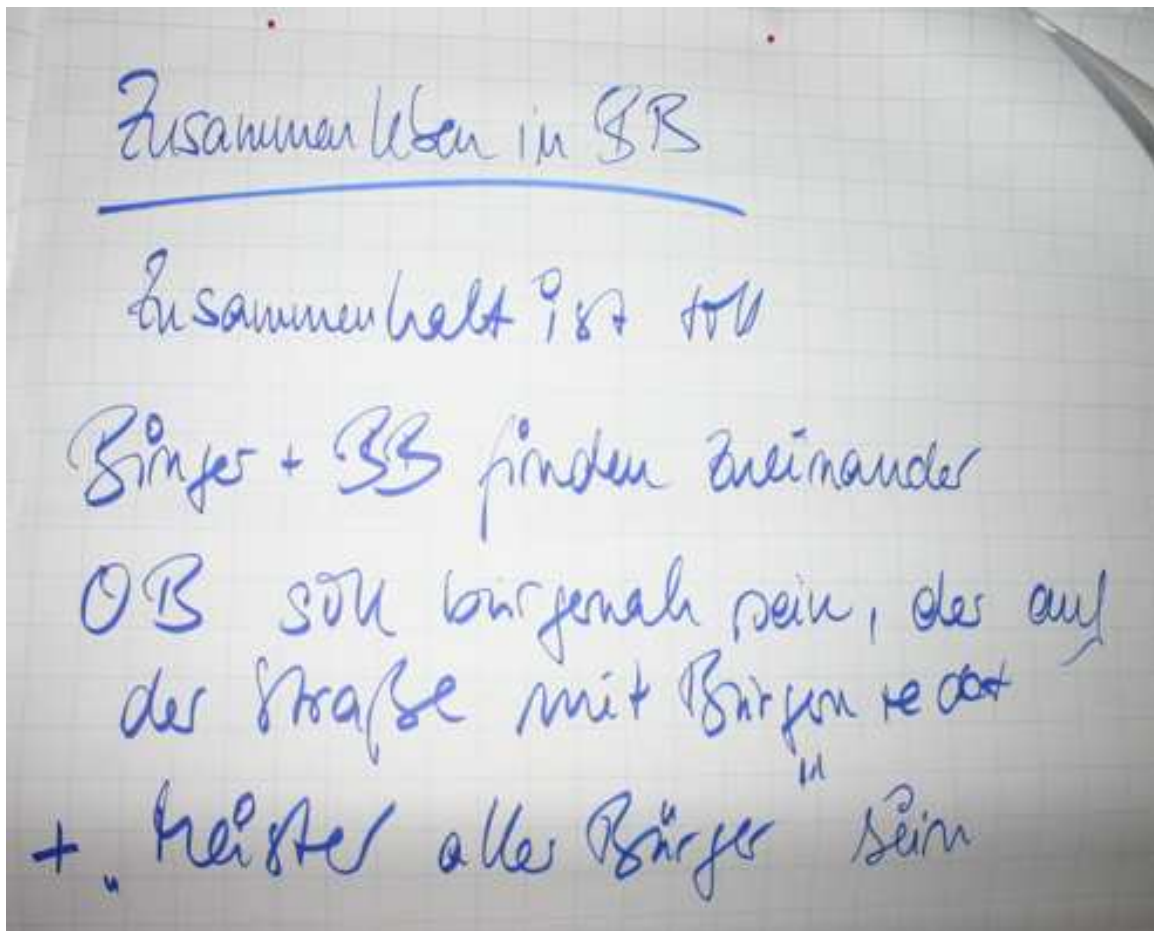 Zusammenleben in BB
Zusammenhalt ist toll
Bürger + BB finden zueinander
OB soll bürgernah sein, der auf
der Straße mit Bürgern redet
+ „Meister aller Bürger" sein